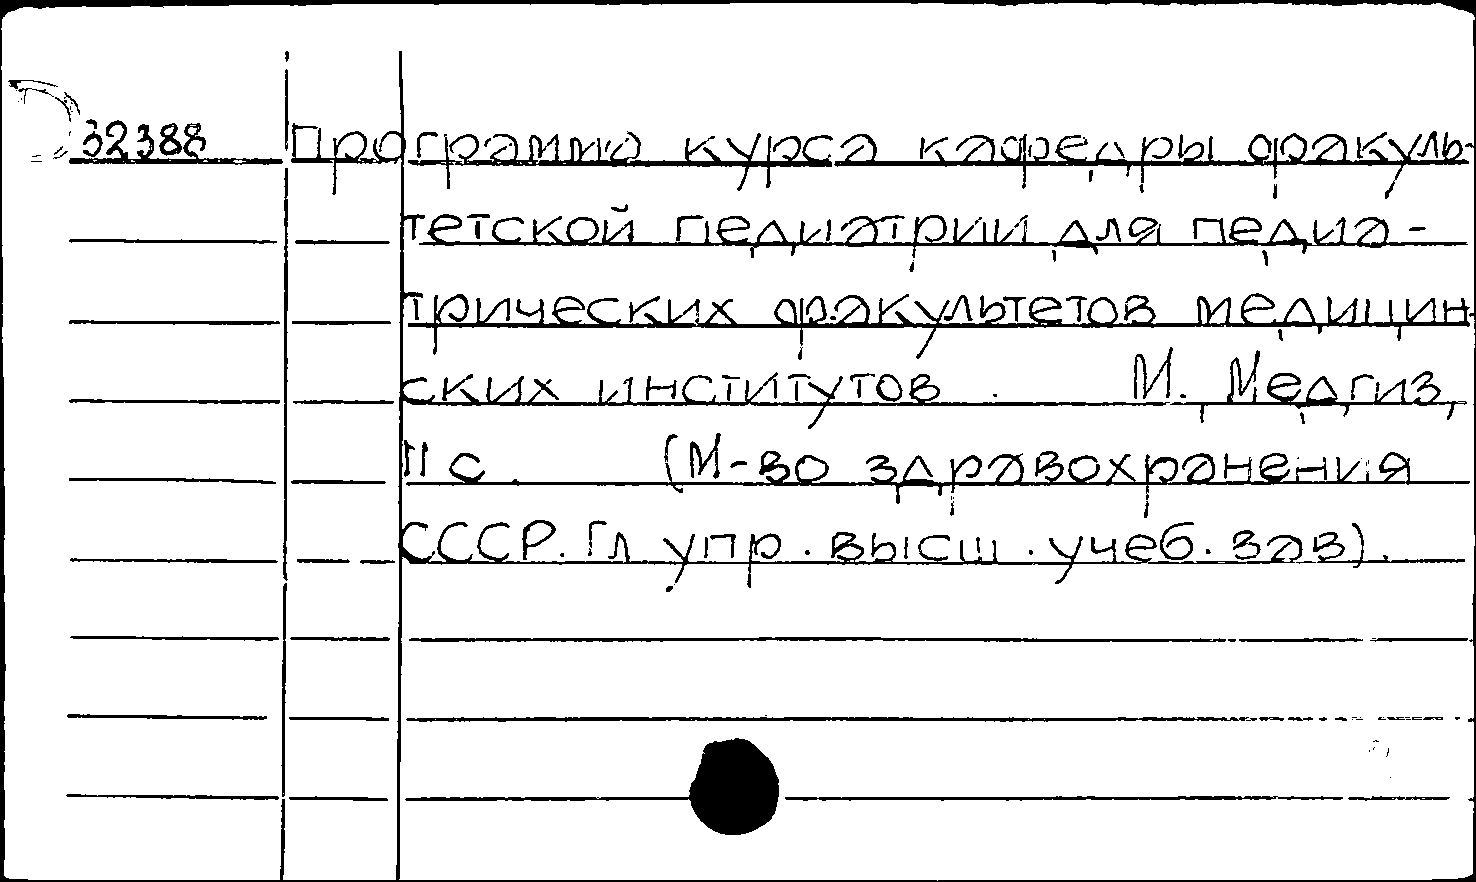 32388 Программа курса кафедры факуль-
тетской педиатрии для педиа-
трических факультетов медицин-
ских институтов. М. Медгиз,
11 с. (М-во здравохранения
СССР. Гл упр. высш. учеб. зав).